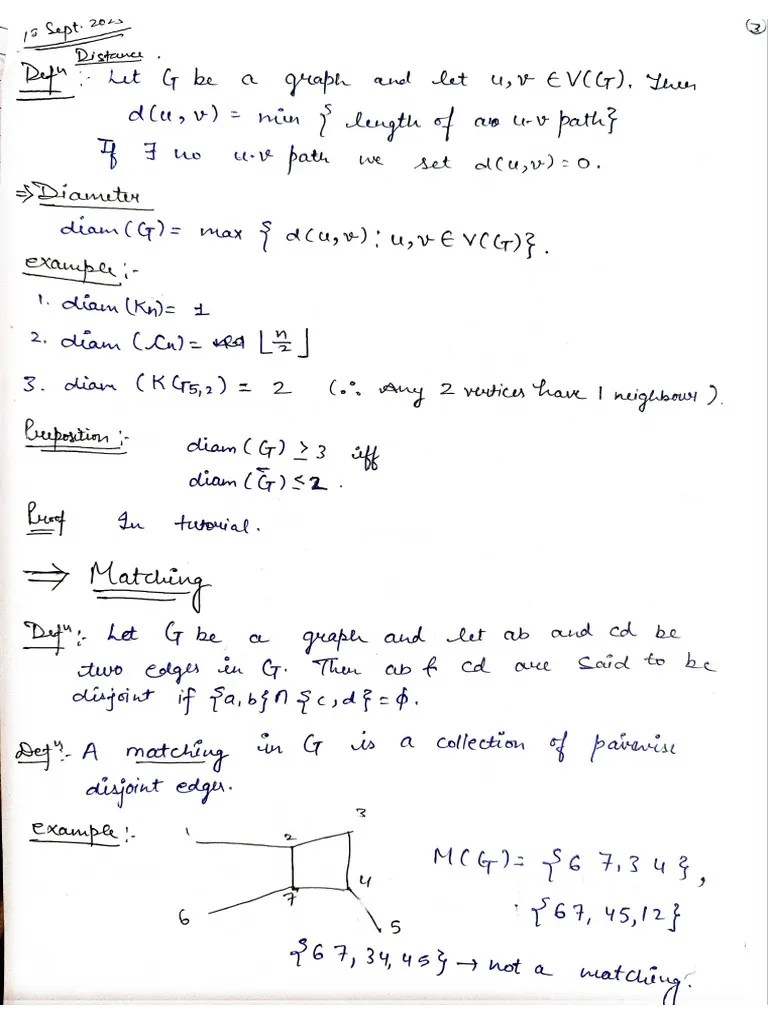 1s Sept. 2023
3
Distance.
Defn:- Let G be a graph and let u, v ∈ V(G). Then
d(u, v) = min { length of a u-v path}
If ∃ no u-v path we set d(u,v) = 0.
⇒ Diameter
diam(G) = max { d(u,v) : u, v ∈ V(G)}.
example:-
1. diam(Kn) = 1
2. diam (Cn) = ⌊n/2⌋
3. diam (KG5,2) = 2 (∴ Any 2 vertices have 1 neighbour).
Preposition:- diam(G) ≥ 3 iff
diam(G̅) ≤ 2.
Proof In tutorial.
⇒ Matching
Defn:- Let G be a graph and let ab and cd be
two edges in G. Then ab & cd are said to be
disjoint if {a,b} ∩ {c,d} = ϕ.
Defn:- A matching in G is a collection of pairwise
disjoint edges.
example:-
1 2 3
4
7
6 5
M(G) = {6 7, 3 4},
{67, 45, 12}
{67, 34, 45} → not a matching.